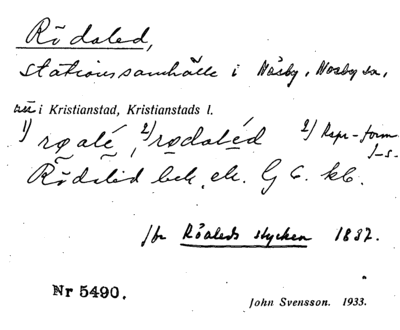 Rödaled,
stationssamhälle i Näsby, Nosaby sn,
nu i Kristianstad, Kristianstads l.
1) roalé, 2) rodaléd 2) Repr-form
Rödaled bek. ek. G 6. kb.
jbr Röaleds stycken 1837.
Nr 5490.
John Svensson. 1933.